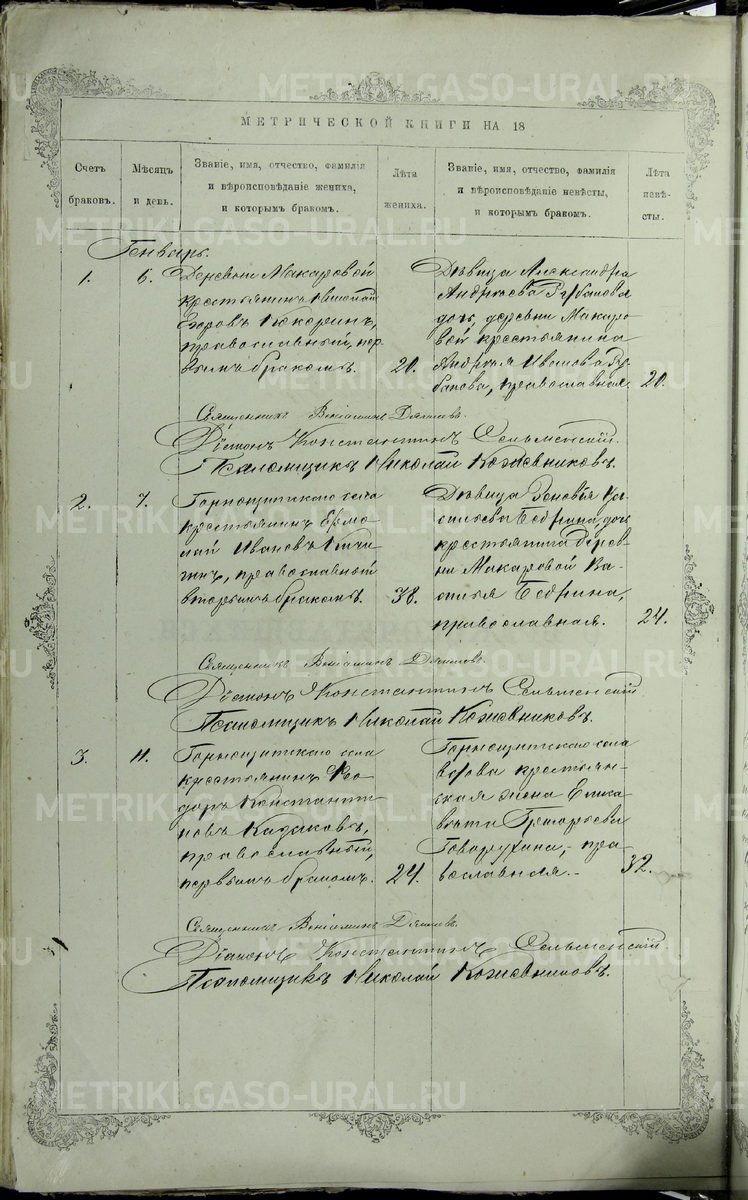 МЕТРИЧЕСКОЙ КНИГИ НА 18
Счетъ браковъ.
Мѣсяцъ и день.
Званіе, имя, отчество, фамилія и вѣроисповѣданіе жениха, и которымъ бракомъ.
Лѣта жениха.
Званіе, имя, отчество, фамилія и вѣроисповѣданіе невѣсты, и которымъ бракомъ.
Лѣта невѣсты.
Генварь.
1. 6.
Деревни Макаровой
крестьянинъ
Егоровъ Кокоринъ,
православный, пер
вымъ бракомъ. 20.
Дѣвица Александра
Андреева Рубанова
дочь деревни Макаро
вой крестьянина
Андрея Иванова Ру
банова, православная. 20.
Священникъ Веніаминъ
Діаконъ Константинъ Сельменскій.
Псаломщикъ Николай Кожевниковъ.
2. 7.
Горнощитскаго села
крестьянинъ Ермо
лай Ивановъ
православный
вторымъ бракомъ. 38.
Дѣвица Зиновья Ва
сильева Бедрина, дочь
крестьянина дерев
ни Макаровой Ва
силья Бедрина,
православная. 24.
Священникъ Веніаминъ
Діаконъ Константинъ Сельменскій
Псаломщикъ Николай Кожевниковъ.
3. 11.
Горнощитскаго села
крестьянинъ Ѳео
доръ Константи
новъ Кадаковъ,
православный,
первымъ бракомъ. 24.
Горнощитскаго села
вдова крестьян-
ская жена Елиса
вета Григорьева
пра
вославная. 32.
Священникъ Веніаминъ
Діаконъ Константинъ Сельменскій.
Псаломщикъ Николай Кожевниковъ.
METRIKI.GASO-URAL.RU